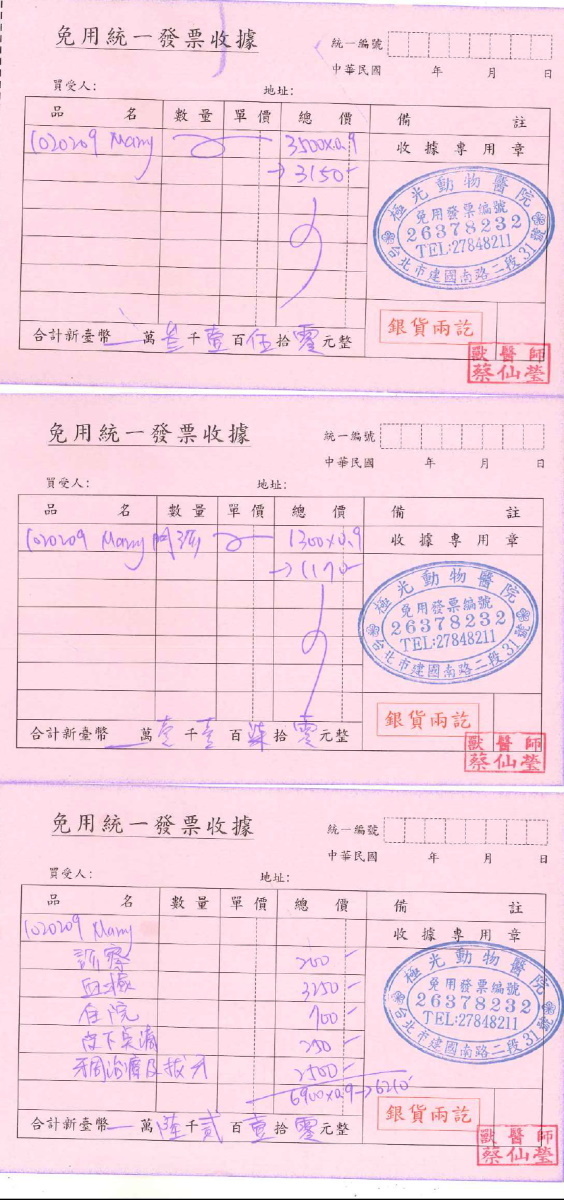 免用統一發票收據
統一編號
中華民國 年 月 日
買受人: 地址:
品 名 數量 單價 總價 備 註
1020209 Many 3500x0.9 收據專用章
→3150-
極光動物醫院
免用發票編號
26378232
TEL:27848211
台北市建國南路二段31號
銀貨兩訖
合計新臺幣 萬叁千壹百伍拾零元整
獸醫師
蔡仙瑩
免用統一發票收據
統一編號
中華民國 年 月 日
買受人: 地址:
品 名 數量 單價 總價 備 註
1020209 Many 1300x0.9 收據專用章
→1170-
極光動物醫院
免用發票編號
26378232
TEL:27848211
台北市建國南路二段31號
銀貨兩訖
合計新臺幣 萬壹千壹百柒拾零元整
獸醫師
蔡仙瑩
免用統一發票收據
統一編號
中華民國 年 月 日
買受人: 地址:
品 名 數量 單價 總價 備 註
1020209 Many 收據專用章
診察 200-
血檢 3250-
住院 700-
皮下點滴 250-
牙周治療及拔牙 2500-
6900x0.9→6210-
極光動物醫院
免用發票編號
26378232
TEL:27848211
台北市建國南路二段31號
銀貨兩訖
合計新臺幣 萬陸千貳百壹拾零元整
獸醫師
蔡仙瑩